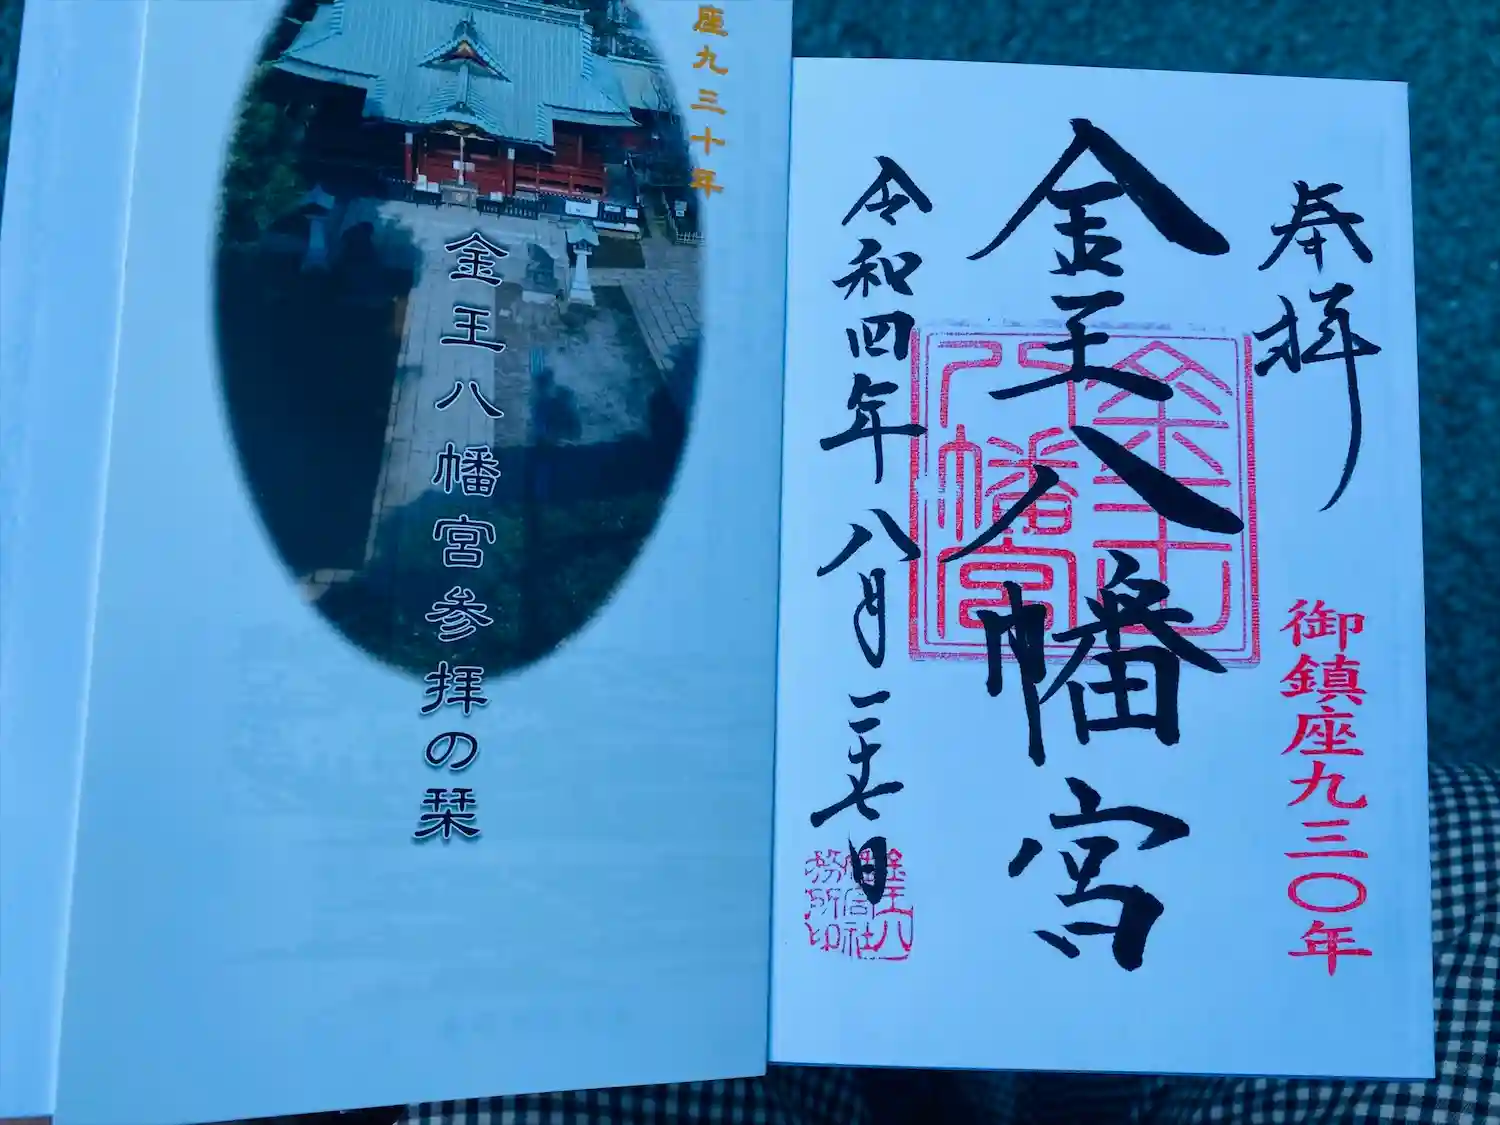 座九三十年
金王八幡宮参拝の栞
奉拝
御鎮座九三〇年
金王八幡宮
金王八幡宮
令和四年八月二十七日
金王八
幡宮社
務所印